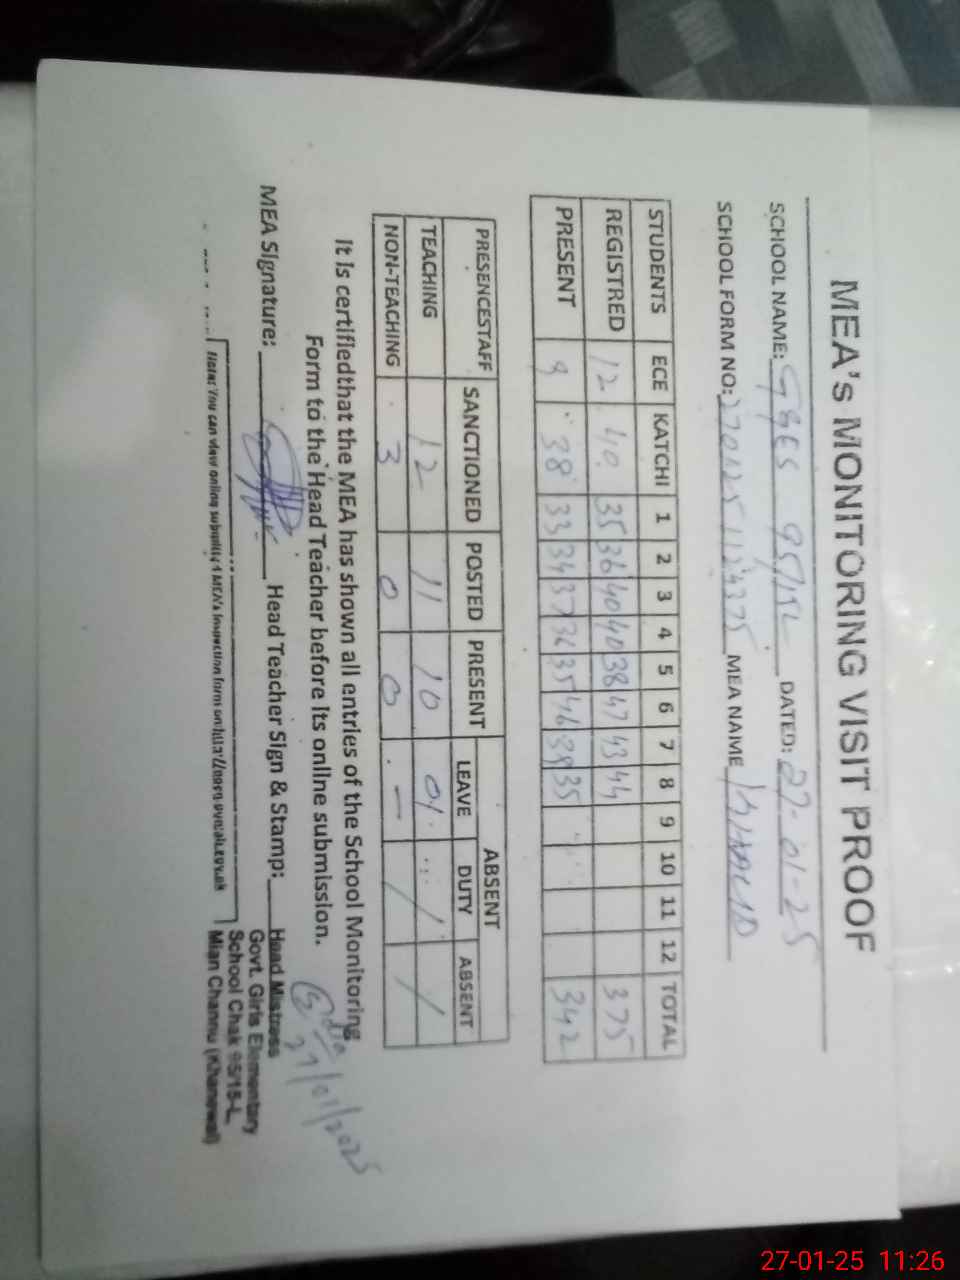 MEA's MONITORING VISIT PROOF
SCHOOL NAME: GGES 95/15L DATED: 27-01-25
SCHOOL FORM NO: MEA NAME
STUDENTS ECE KATCHI 1 2 3 4 5 6 7 8 9 10 11 12 TOTAL
REGISTRED 12 40 35 36 40 40 38 47 43 44 375
PRESENT 9 38 33 34 37 36 35 46 39 35 342
PRESENCESTAFF SANCTIONED POSTED PRESENT ABSENT
LEAVE DUTY ABSENT
TEACHING 12 11 10 01
NON-TEACHING 3 0 0 —
It is certifiedthat the MEA has shown all entries of the School Monitoring
Form to the Head Teacher before its online submission.
MEA Signature: Head Teacher Sign & Stamp:
27/01/2025
Head Mistress
Govt. Girls Elementary
School Chak 95/15-L
Mian Channu (Khanewal)
Note: You can view online submitted MEA's Inspection form on
27-01-25 11:26